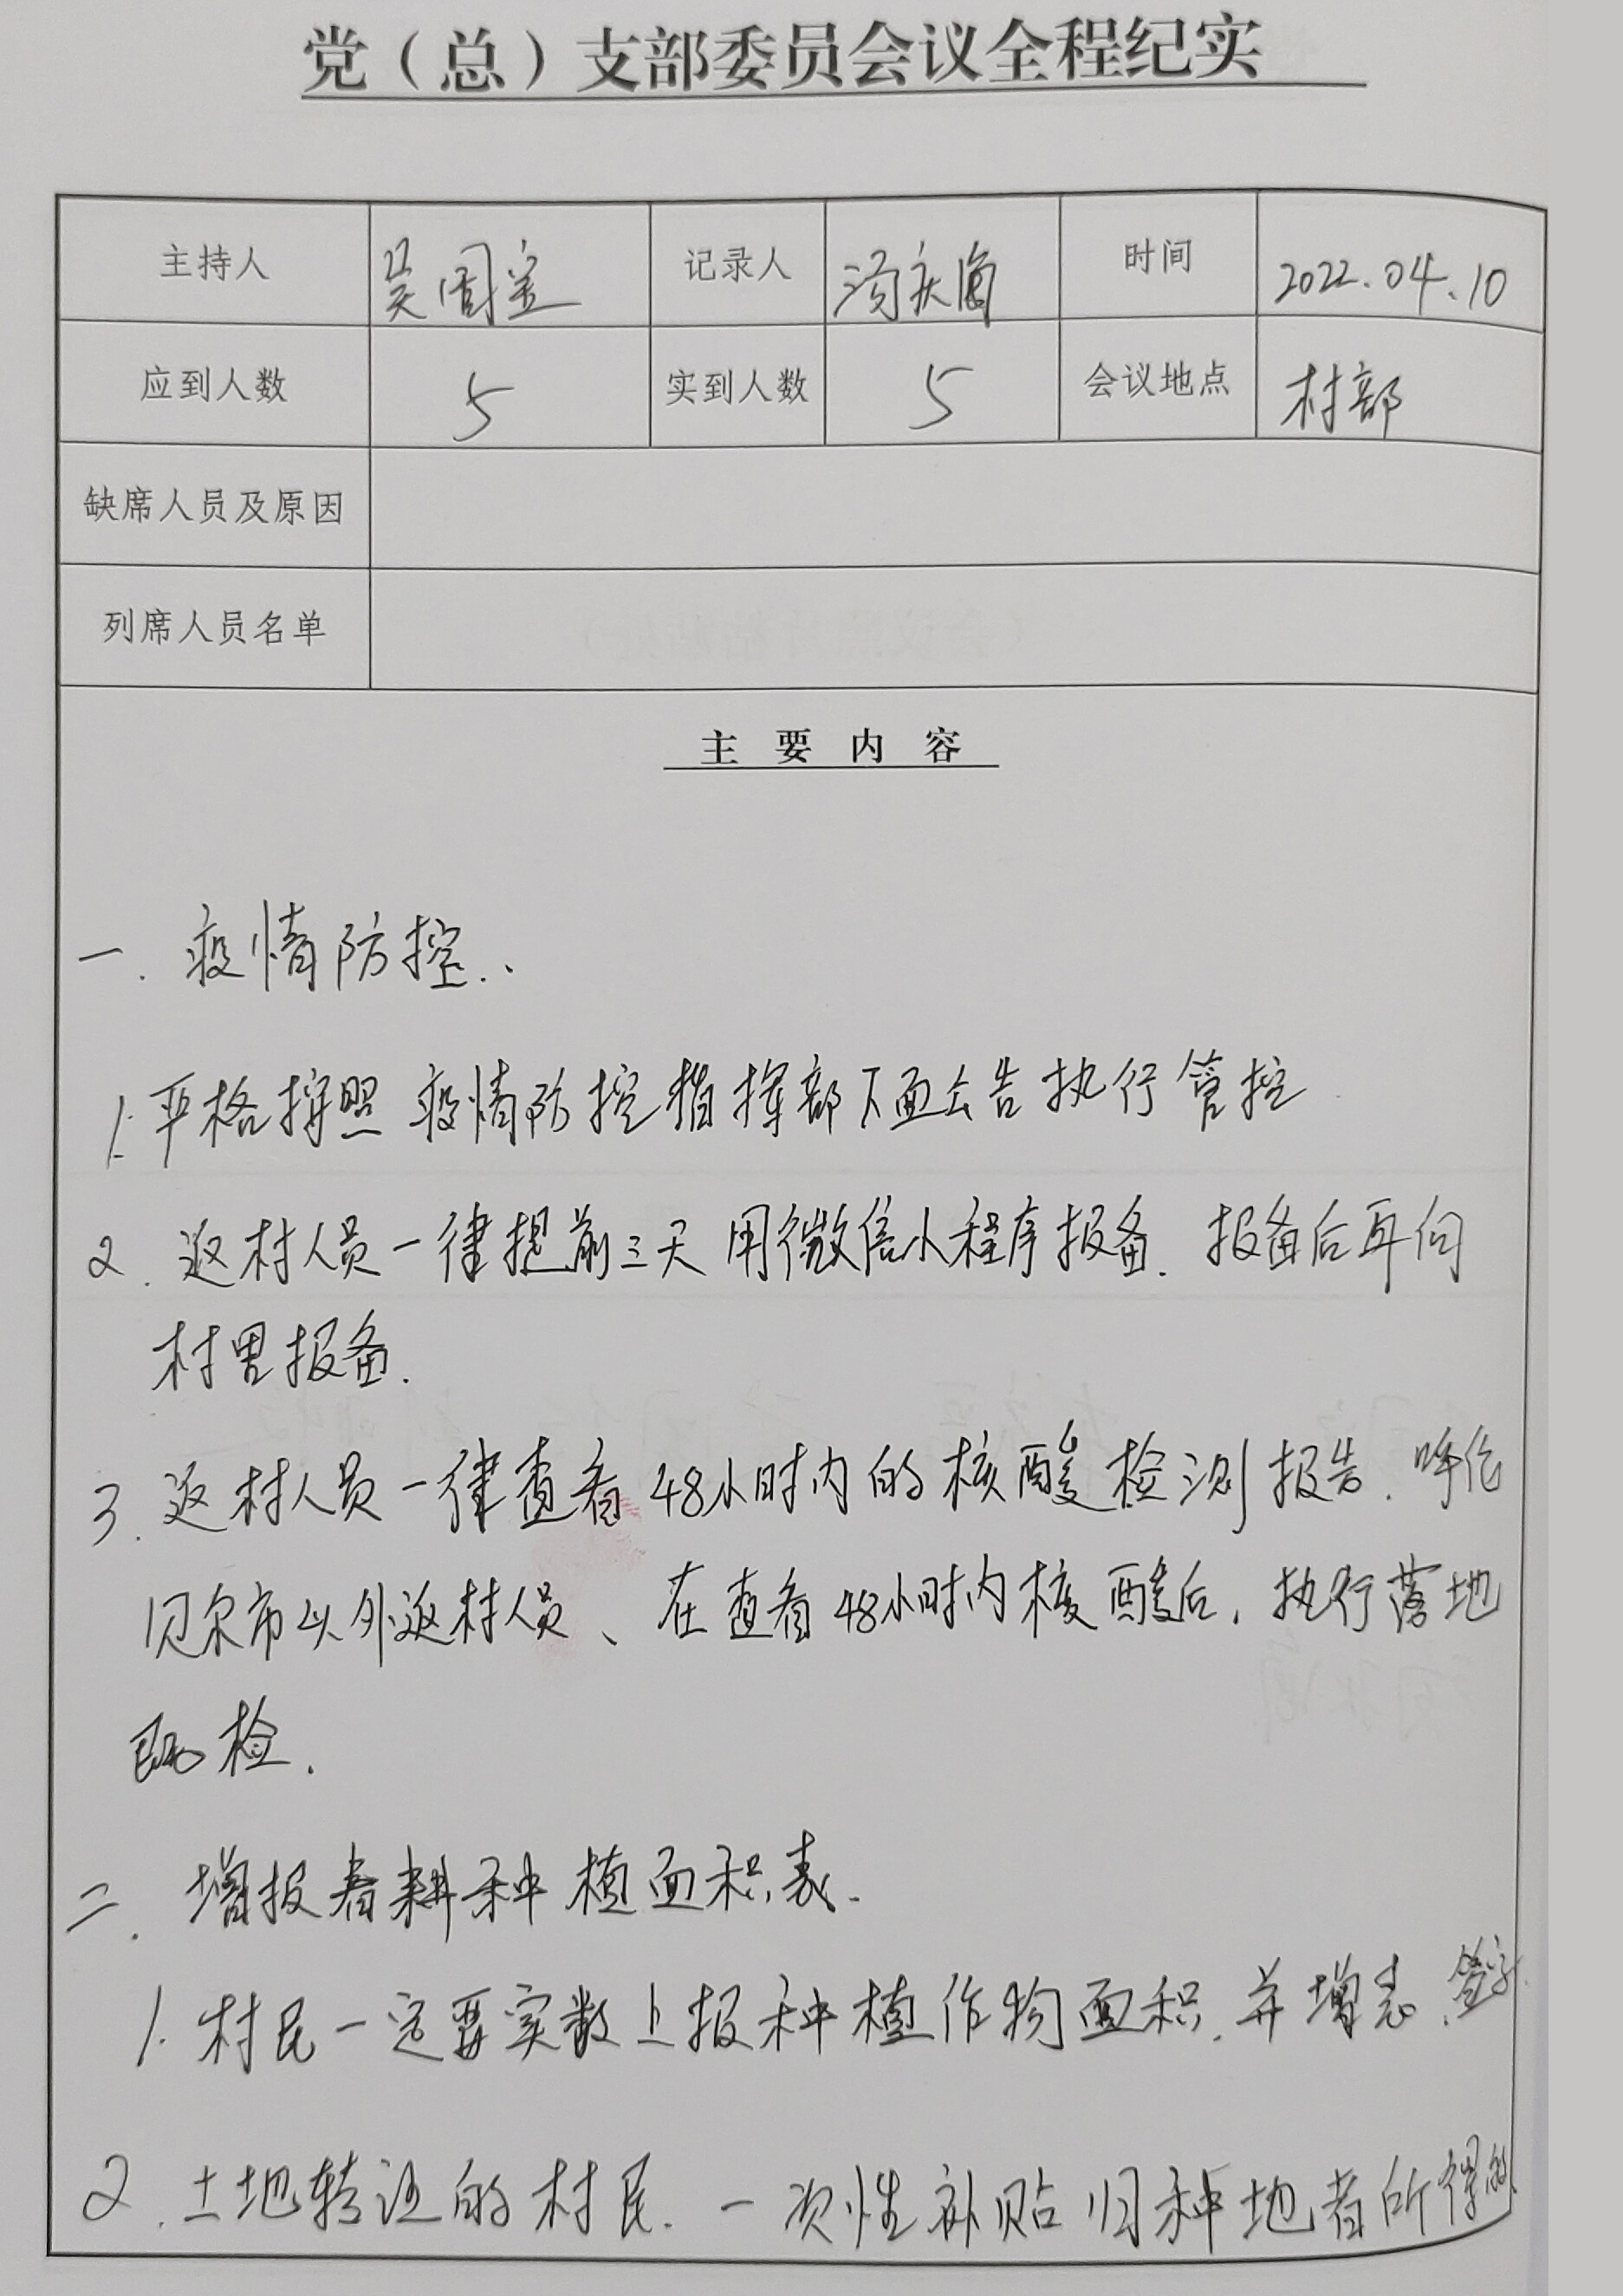 党（总）支部委员会议全程纪实
主持人 吴国 记录人 时间 2022.04.10
应到人数 5 实到人数 5 会议地点 村部
缺席人员及原因
列席人员名单
主要内容
一. 疫情防控.
1. 严格按照 疫情防控指挥部下面公告执行管控
2. 返村人员一律提前三天用微信小程序报备. 报备后再向
村里报备.
3. 返村人员一律查看48小时内的核酸检测报告. 呼伦
贝尔市以外返村人员、在查看48小时内核酸后, 执行落地
既检.
二. 增报春耕种植面积表.
1. 村民一定要实数上报种植作物面积. 并增表. 签字.
2. 土地转让的村民. 一次性补贴归种地者所得的